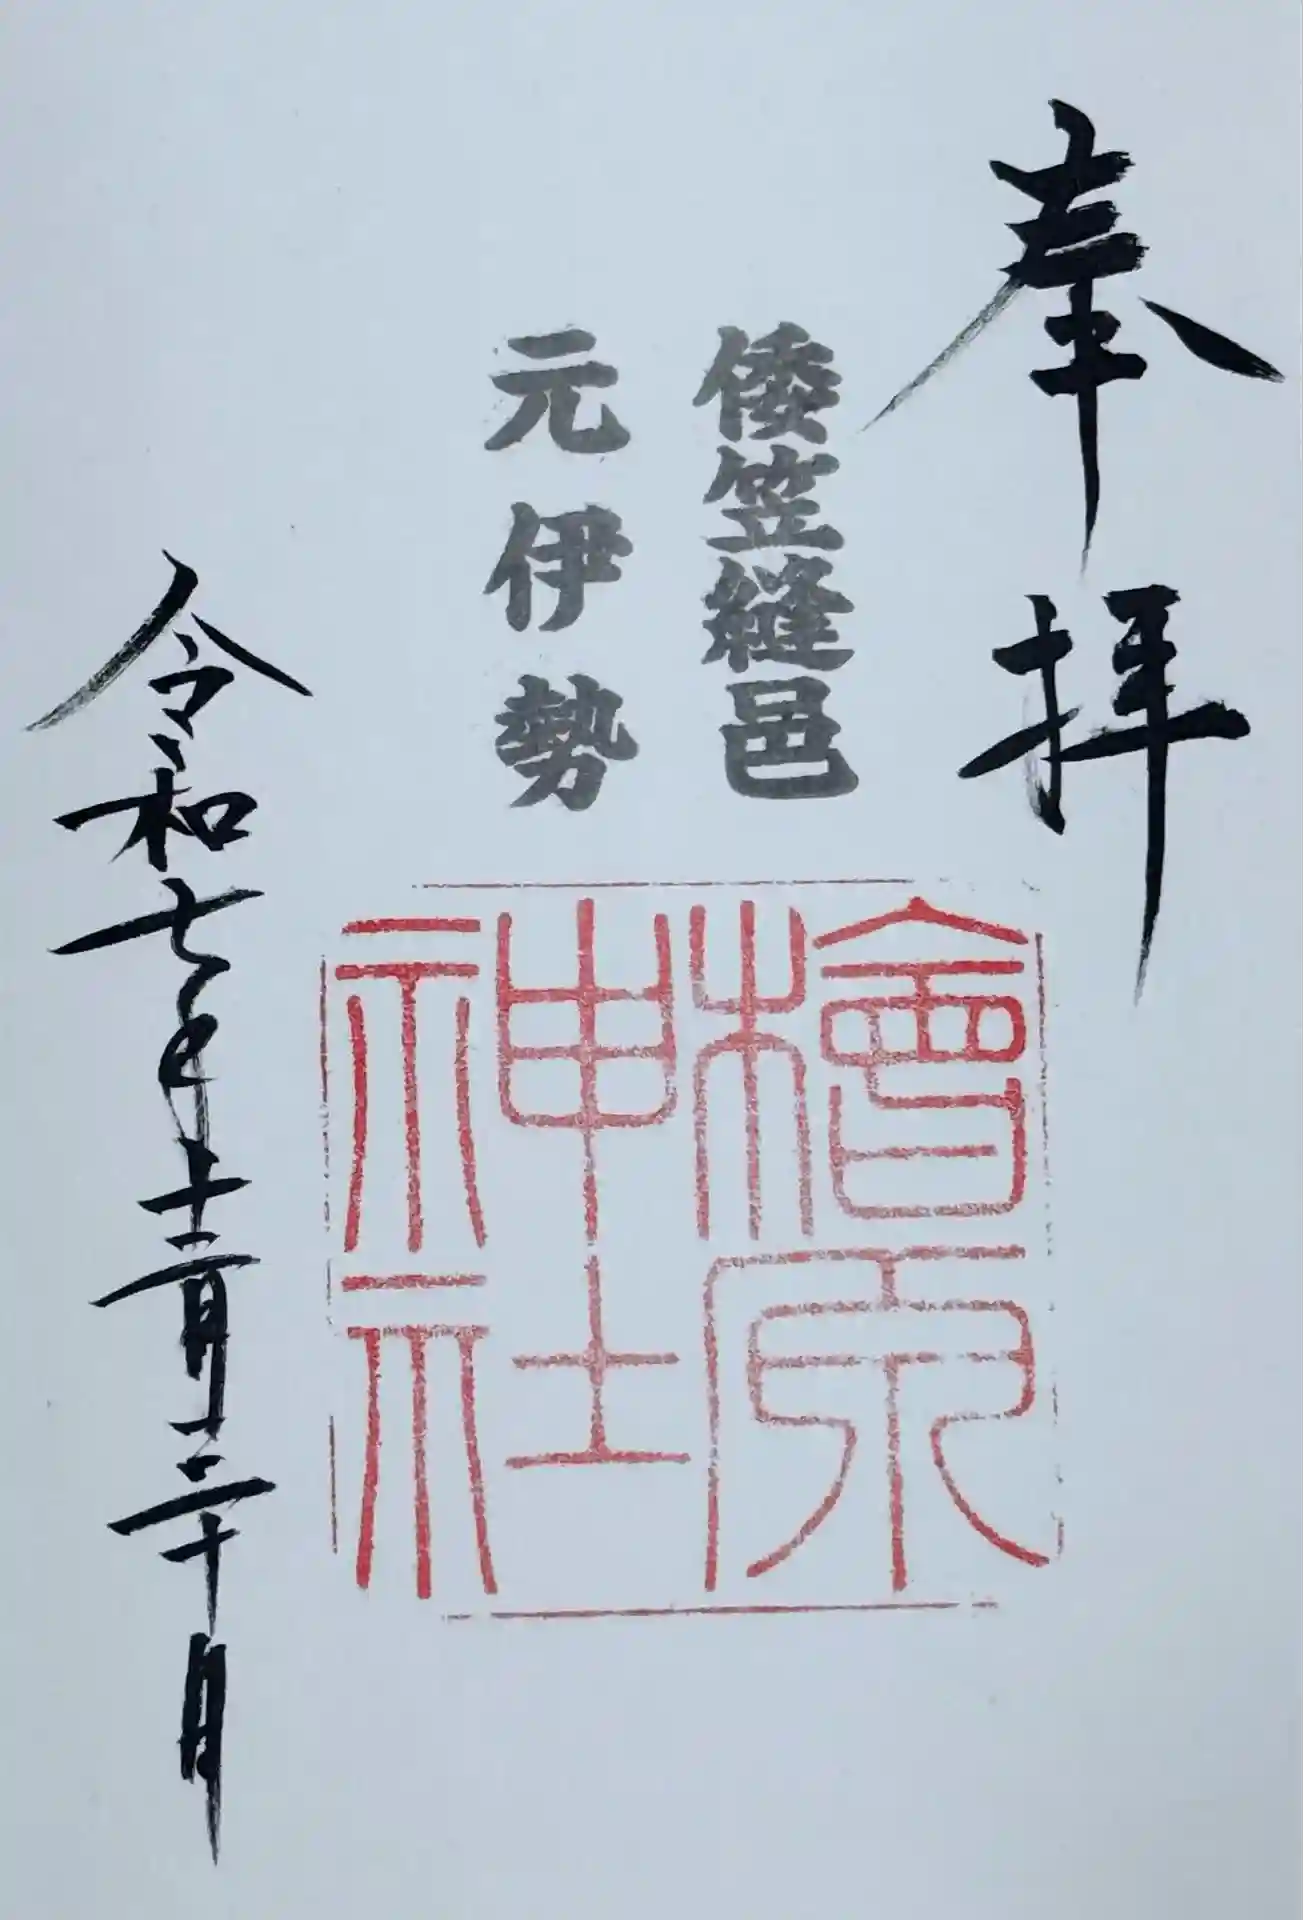 奉拝
倭笠縫邑
元伊勢
檜原
神社
令和七年十一月二十日